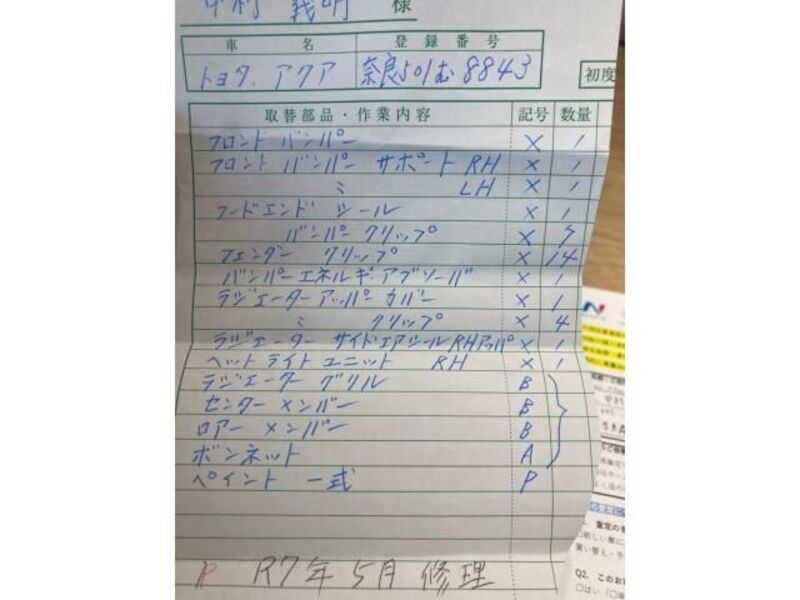 中村 義明 様
車名 登録番号
トヨタ. アクア 奈良501む8843
初度
取替部品・作業内容 記号 数量
フロント バンパー X 1
フロント バンパー サポート RH X 1
〃 LH X 1
フードエンド シール X 1
バンパー クリップ X 7
フェンダー クリップ X 14
バンパーエネルギ.アブソーバ X 1
ラジエーターアッパ カバー X 1
〃 クリップ X 4
ラジエーター サイドエアシールRHアッパ X 1
ヘットライト ユニット RH X 1
ラジエーター グリル B
センター メンバー B
ロアー メンバー B
ボンネット A
ペイント 一式 P
R7年5月 修理
N
査定の
Q2. このお